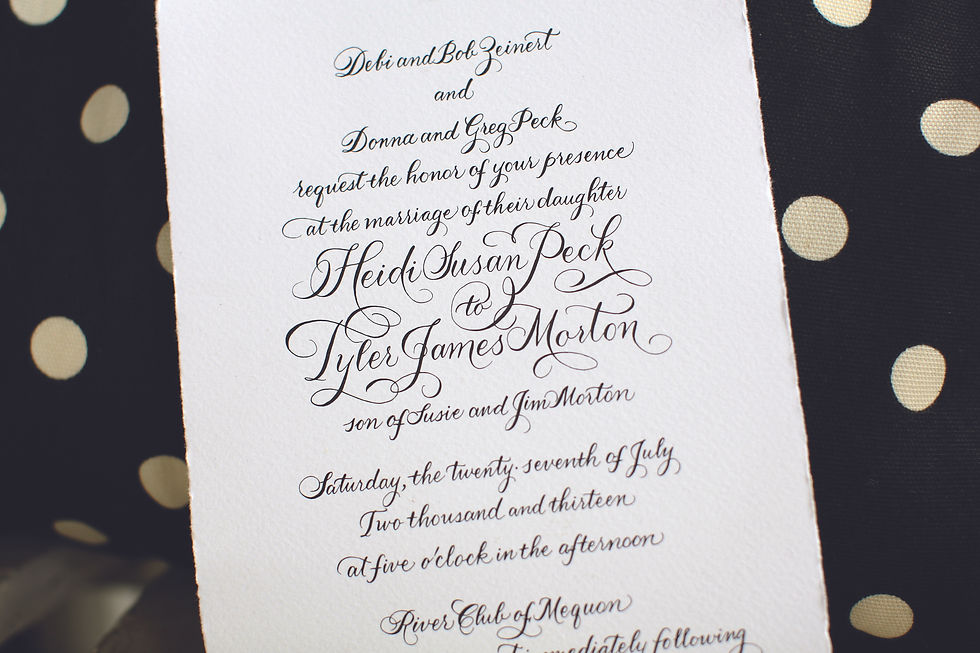 Debi and Bob Zeinert
and
Donna and Greg Peck
request the honor of your presence
at the marriage of their daughter
Heidi Susan Peck
to
Tyler James Morton
son of Susie and Jim Morton
Saturday, the twenty-seventh of July
Two thousand and thirteen
at five o'clock in the afternoon
River Club of Mequon
immediately following